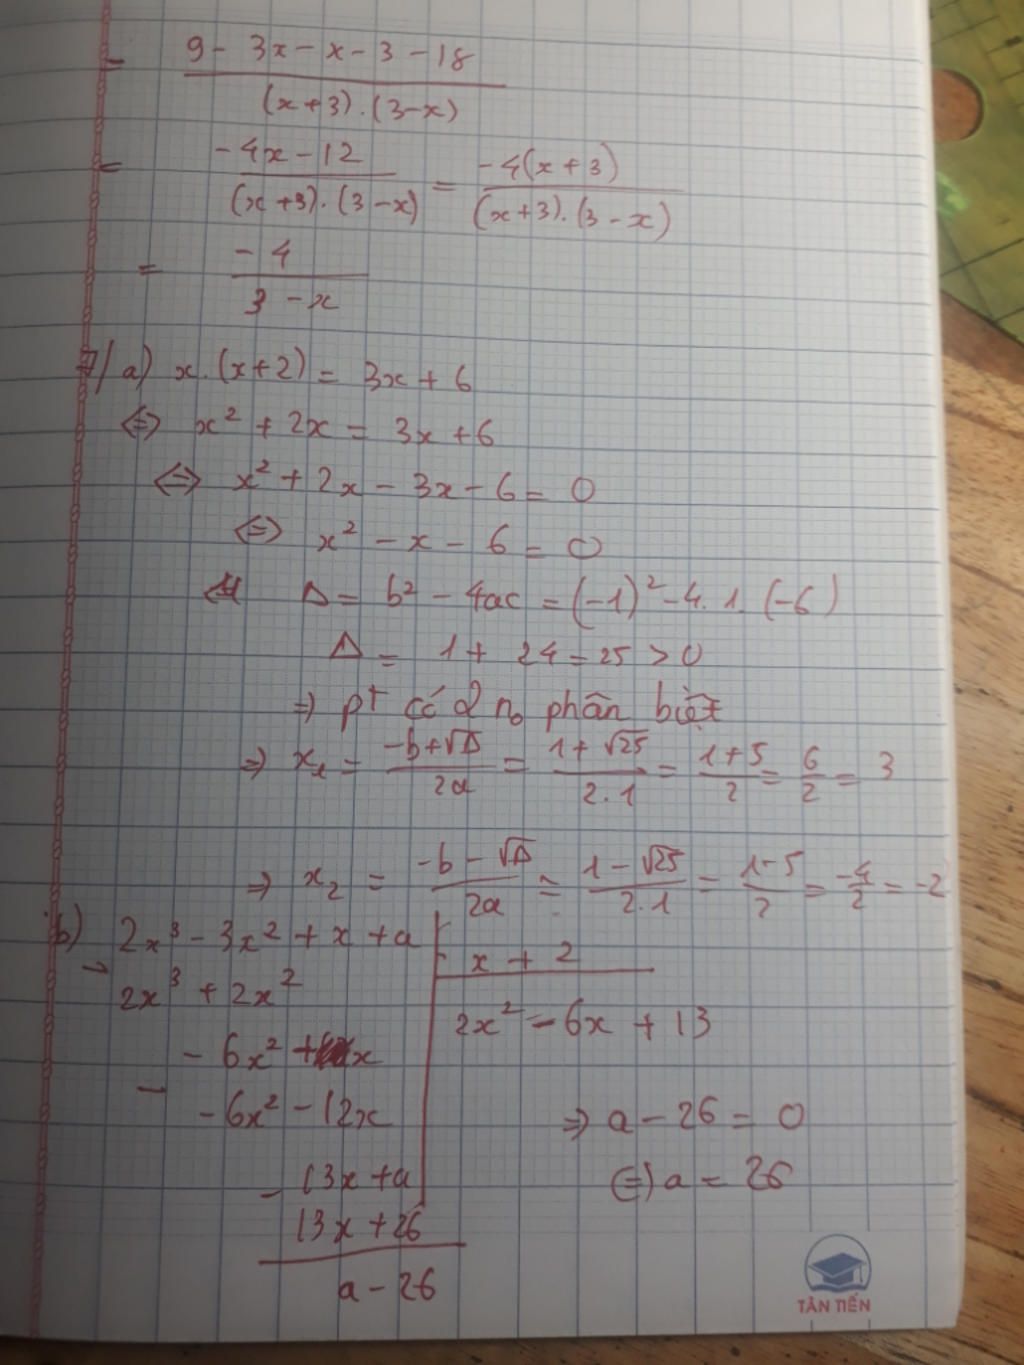 = 9 - 3x - x - 3 - 18 / (x+3).(3-x)
= -4x - 12 / (x+3).(3-x) = -4(x+3) / (x+3).(3-x)
= -4 / 3 - x
7/ a) x.(x+2) = 3x + 6
⇔ x² + 2x = 3x + 6
⇔ x² + 2x - 3x - 6 = 0
⇔ x² - x - 6 = 0
Δ = b² - 4ac = (-1)² - 4.1.(-6)
Δ = 1 + 24 = 25 > 0
⇒ pt có 2 no phân biệt
⇒ x₁ = -b+√Δ / 2a = 1+√25 / 2.1 = 1+5 / 2 = 6/2 = 3
⇒ x₂ = -b-√Δ / 2a = 1-√25 / 2.1 = 1-5 / 2 = -4/2 = -2
b) 2x³ - 3x² + x + a | x + 2
- 2x³ + 2x² | 2x² - 6x + 13
- 6x² + x
- -6x² - 12x ⇒ a - 26 = 0
13x + a ⇔ a = 26
- 13x + 26
a - 26
TÂN TIẾN